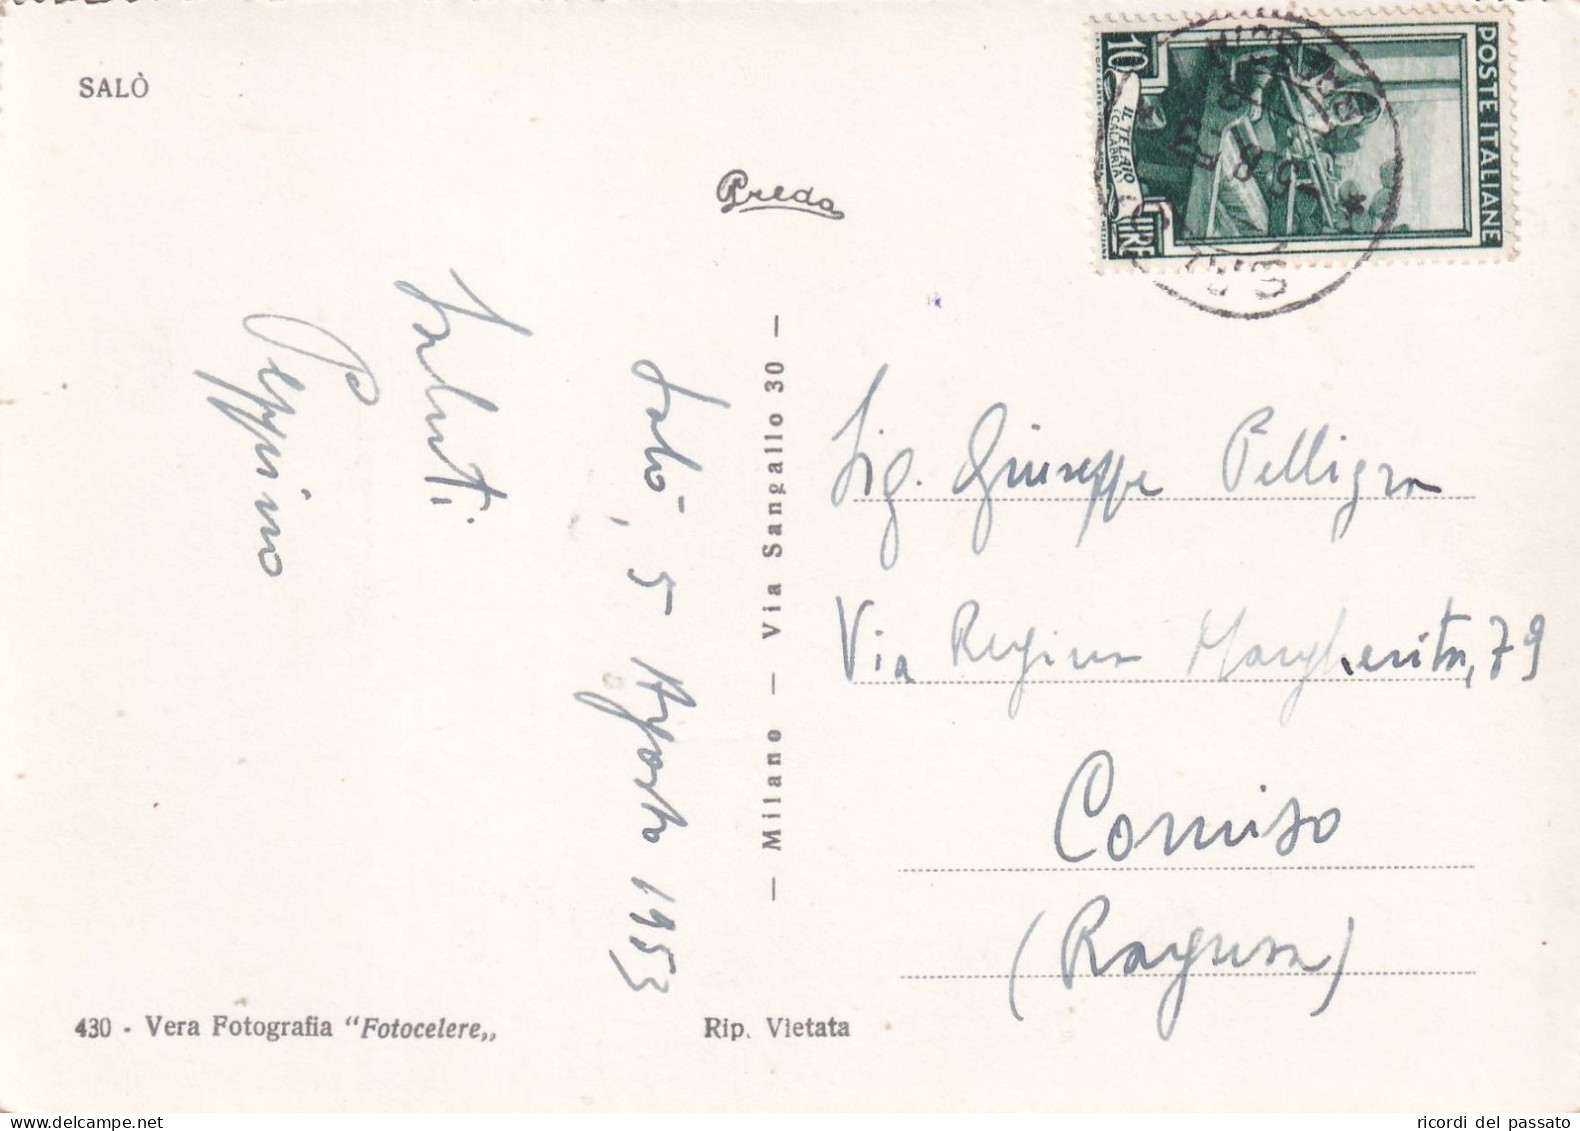 SALÒ
Preda
POSTE ITALIANE
10
IL TELAIO
(CALABRIA)
LIRE
Saluti
Peppino
Salò, 5 Agosto 1953
— Milano — Via Sangallo 30 —
Sig. Giuseppe Pelligra
Via Regina Margherita, 79
Comiso
(Ragusa)
430 - Vera Fotografia "Fotocelere„
Rip. Vietata
ricordi del passato